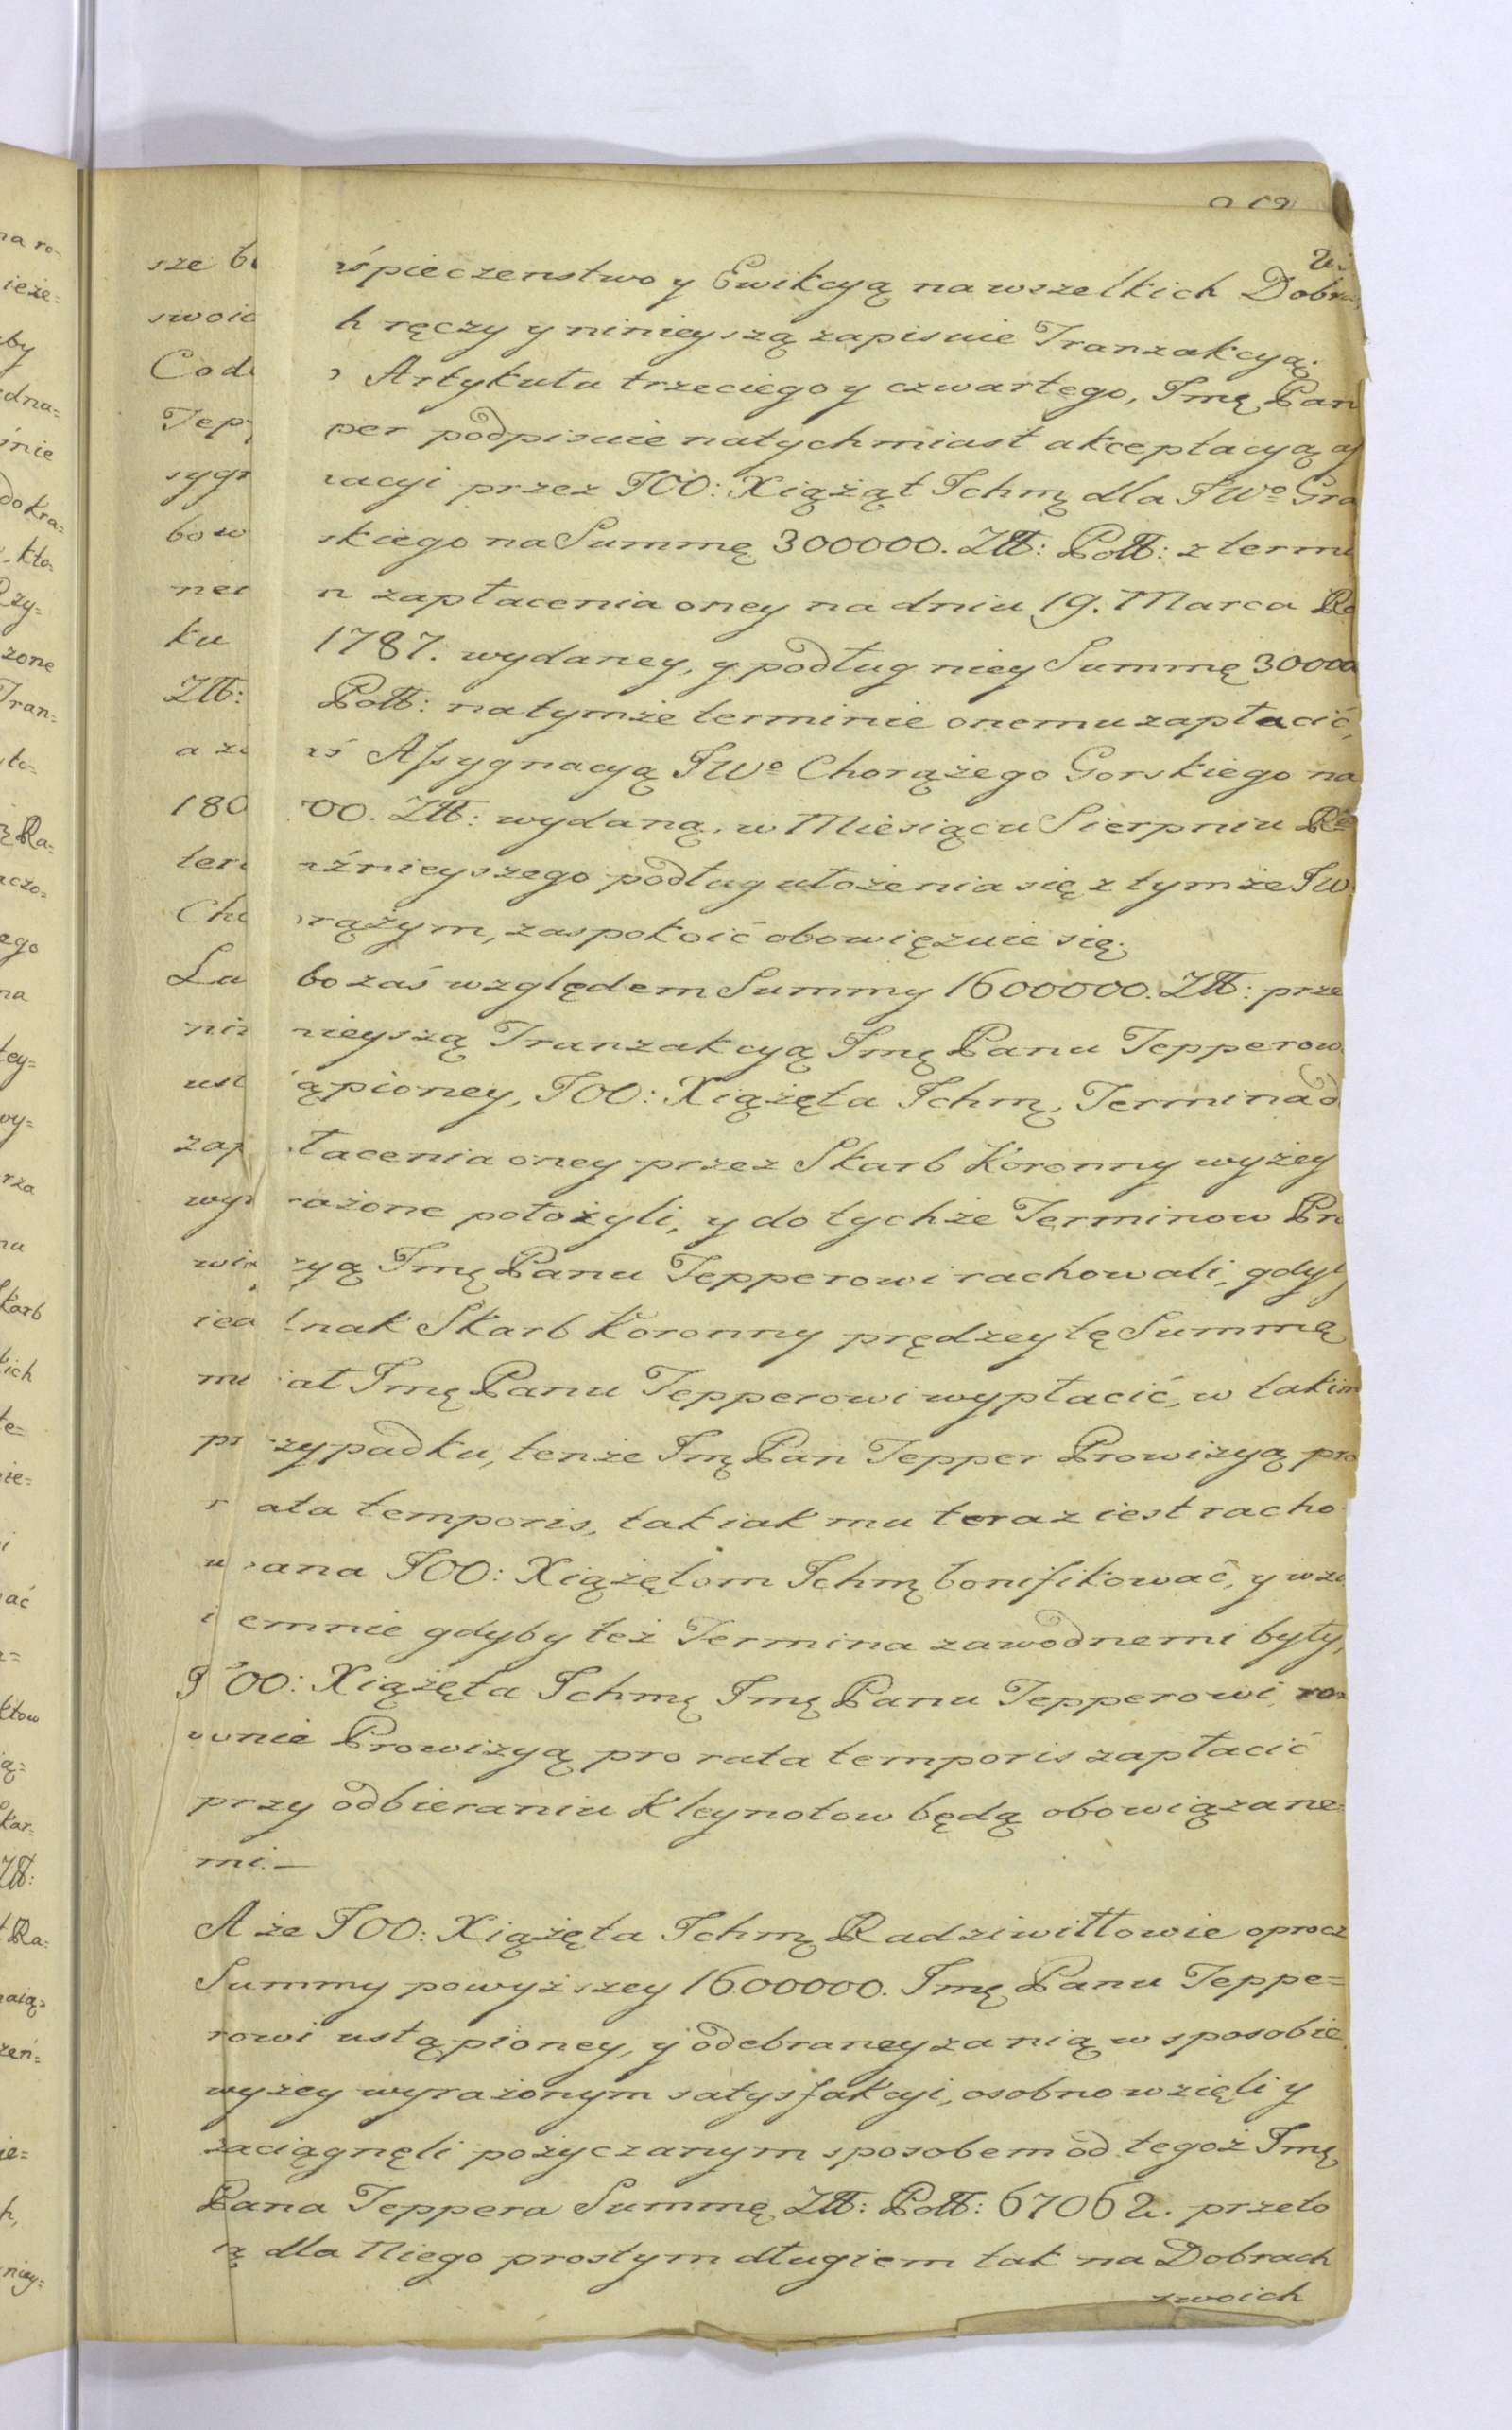 sze beśpieczenstwo y Ewikcyą na wszelkich Dobra
swoich ręczy y ninieyszą zapisuie Tranzakcyą.
Co do Artykułu trzeciego y czwartego, Jmę Pan
Tepper podpisuie natychmiast akceptacyą as
sygnacyi przez JOO: Xiążąt Jchmę dla JWº Gra
bowskiego na Summę 300000. Złł: Poll: z termi
nem zapłacenia oney na dniu 19. Marca Ro
ku 1787. wydaney, y podług niey Summę 30000
Złł: Poll: na tymże terminie onemu zapłacić,
a zaś Assygnacyą JWº Chorążego Gorskiego na
180000. Złł: wydaną, w Miesiącu Sierpniu Rº
teraźnieyszego podług ułożenia się z tymże JW
Chorążym, zaspokoić obowięzuie się.
Lubo zaś względem Summy 1600000. Złł: prze
ninieyszą Tranzakcyą Jmę Panu Tepperow
ustąpioney, JOO: Xiążęta Jchmę, Termina d
zapłacenia oney przez Skarb Koronny wyżey
wyrażone położyli, y do tychże Terminow Pro
wizyą Jmę Panu Tepperowi rachowali, gdyby
iednak Skarb Koronny prędzey tę Summę
miał Jmę Panu Tepperowi wypłacić, w takim
przypadku, tenże Jmę Pan Tepper Prowizyą pro
rata temporis, tak iak mu teraz iest racho
wana JOO: Xiążętom Jchmę bonifikować, y wza
iemnie gdyby też Termina zawodnemi były,
JOO: Xiążęta Jchmę Jmę Panu Tepperowi, ro
wnie Prowizyą pro rata temporis zapłacić
przy odbieraniu Kleynotow będą obowiązane=
mi.—
A że JOO: Xiążęta Jchmę Radziwiłłowie oprocz
Summy powyższey 1600000. Jmę Panu Teppe=
rowi ustąpioney, y odebraney za nią w sposobie
wyżey wyrażonym satysfakcyi, osobno wzięli y
zaciągnęli pożyczanym sposobem od tegoż Jmę
Pana Teppera Summę Złł: Poll: 67062. przeto
ią dla Niego prostym długiem tak na Dobrach
swoich